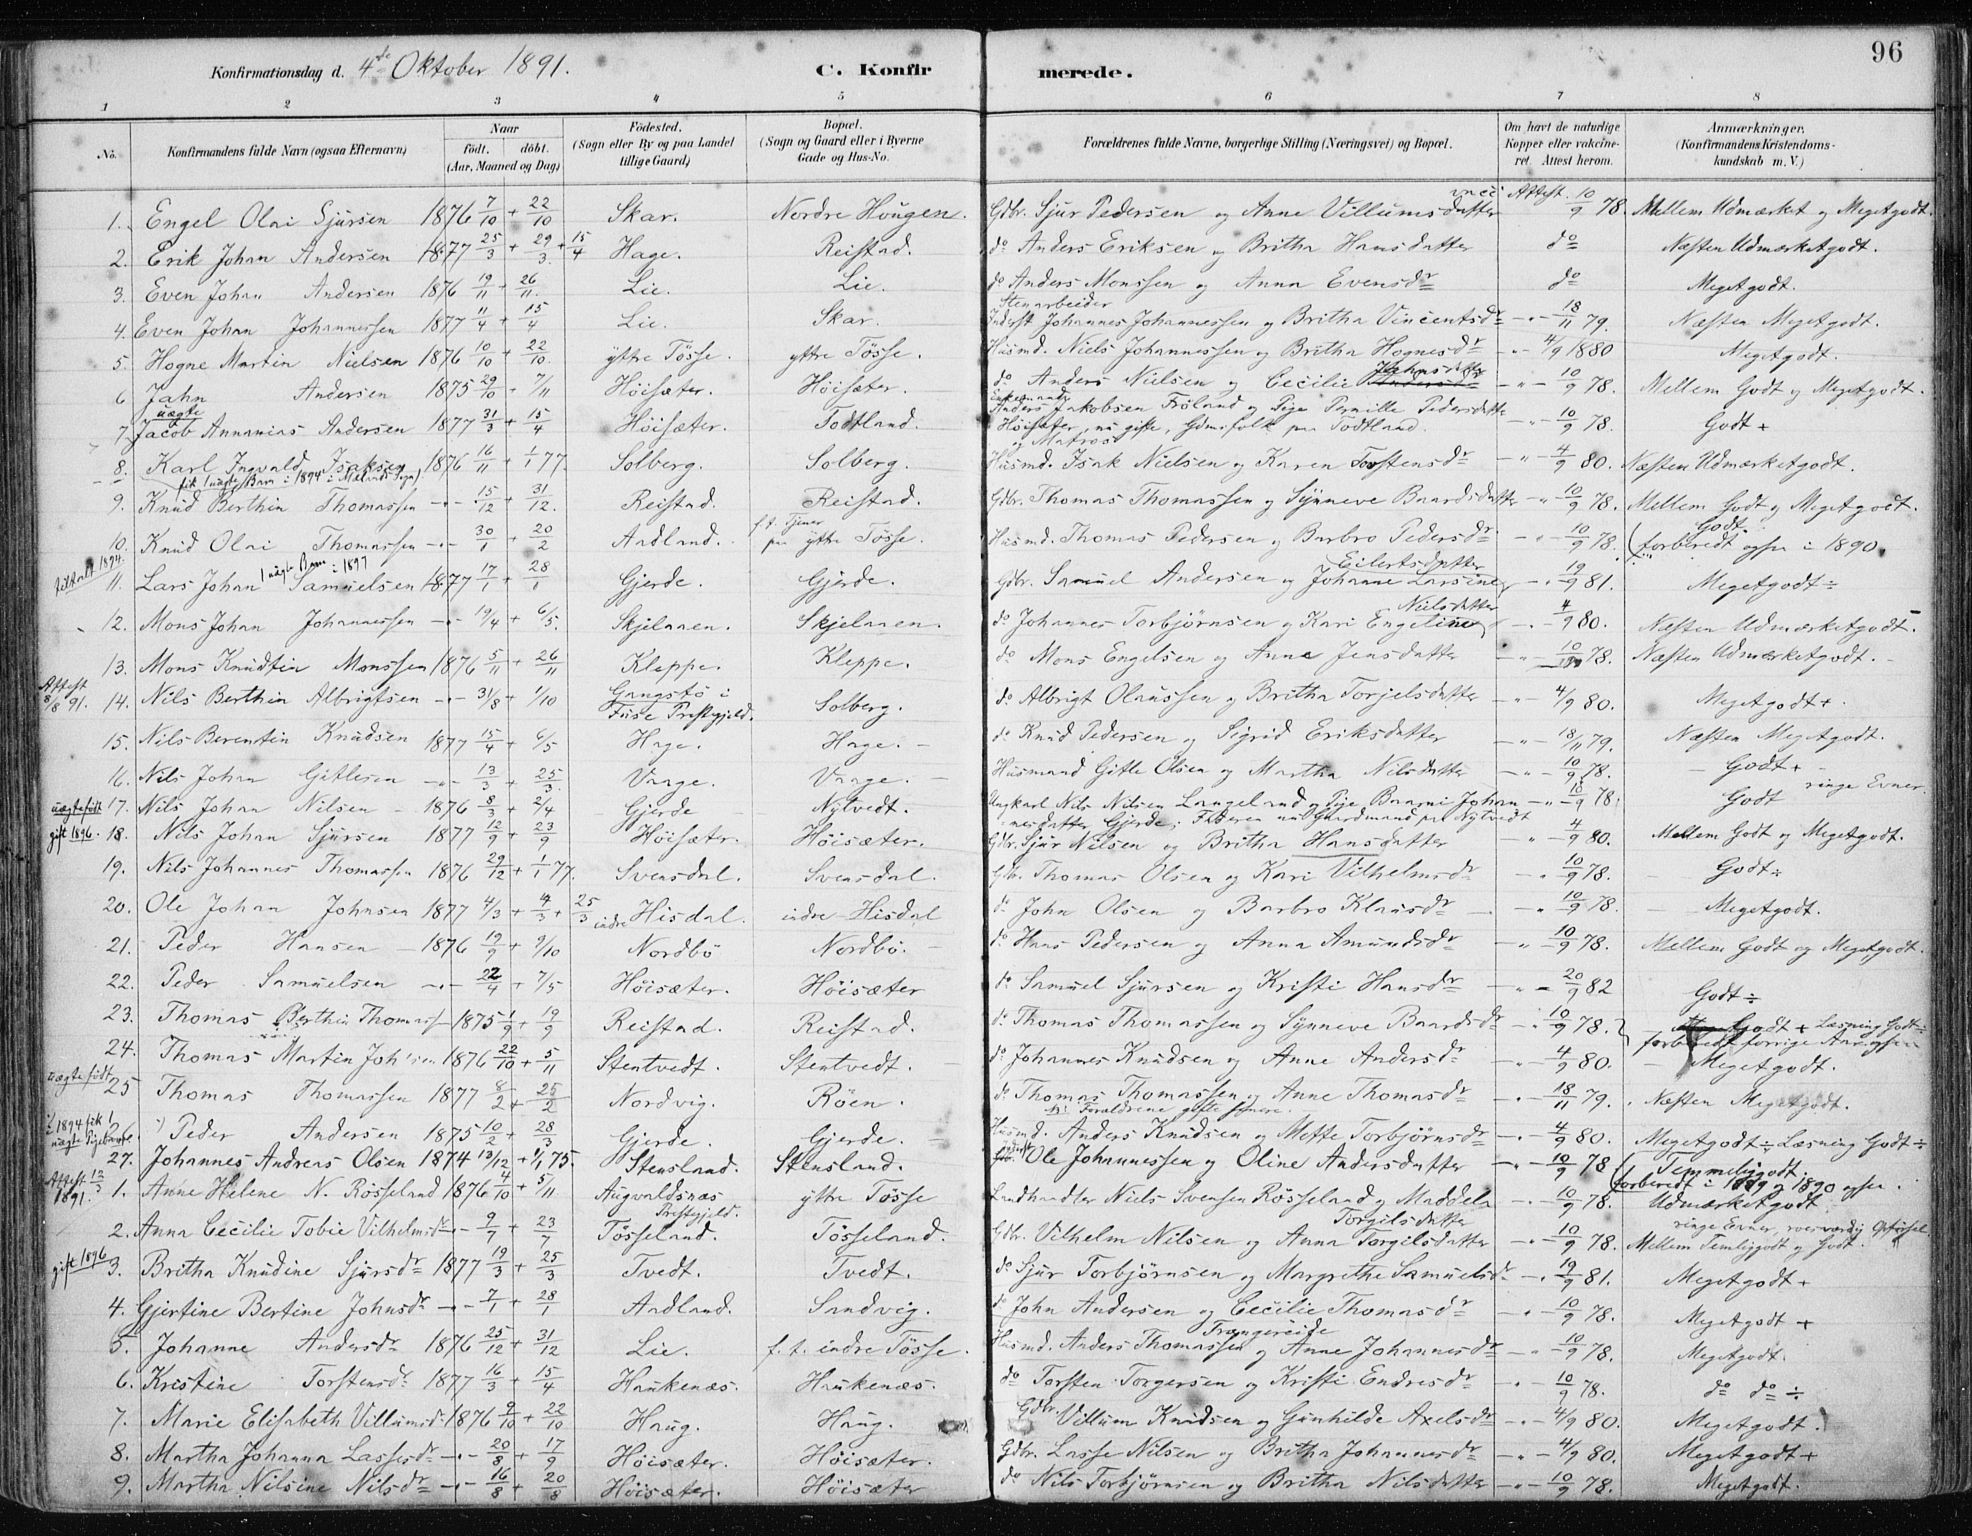 96
Konfirmationsdag d. 4de Oktober 1891. C. Konfirmerede.
1 2 3 4 5 6 7 8
No. Konfirmandens fulde Navn (ogsaa Efternavn) Naar födt. döbt. (Aar, Maaned og Dag) Födested. (Sogn eller By og paa Landet tillige Gaard) Bopæl. (Sogn og Gaard eller i Byerne Gade og Hus-No. Forældrenes fulde Navne, borgerlige Stilling (Næringsvei) og Bopæl. Om havt de naturlige Kopper eller vakcineret. Attest herom. Anmærkninger. (Konfirmandens Kristendomskundskab m. V.)
1. Engel Olai Sjursen 1876 7/10 + 22/10 Skar. Nordre Hougen. Gbr. Sjur Pedersen og Anne Villumsdatter vacc. Attest 10/9 78. Mellem Udmærket og Megetgodt.
2. Erik Johan Andersen 1877 25/3 + 29/3 + 15/4 Hage. Reistad. do Anders Eriksen og Britha Hansdatter do Næsten Udmærketgodt.
3. Even Johan Andersen 1876 19/11 + 26/11 Lie. Lie. do Anders Monssen og Anna Evensdr do Megetgodt.
4. Even Johan Johannessen 1877 11/4 + 15/4 Lie. Skar. Stenarbeider Inderst Johannes Johannessen og Britha Vincentsdr 18/11 79. Næsten Megetgodt.
5. Hogne Martin Nielsen 1876 10/10 + 22/10. ÿttre Tösse. yttre Tösse. Husmd. Niels Johannessen og Britha Hognesdr 4/9 1880 Megetgodt.
6 Jahn Andersen 1875 29/10 + 7/11 Höisæter. Höisæter. do Anders Nielsen og Cecilie Johnsdatter 10/9 78. Mellem Godt og Megetgodt.
7. uægte Jacob Annanias Andersen 1877 31/3 + 15/4 Höisæter. Todtland. Enkemand Anders Jakobsen Fröland og Pige Pernille Pedersdatter Höisæter, nu gifte, Gdmfolk paa Todtland. 10/9 78. Godt +
8. Karl Ingvald Isaksen 1876 16/11 + 1/1 77. Solberg. Solberg. og Matros Husmd. Isak Nielsen og Karen Torstensdr 4/9 80. Næsten Udmærketgodt.
fik 1 uægte Barn i 1894
9. Knud Berthin Thomassen 15/12 + 31/12. Reistad. Reistad. Gbr. Thomas Thomassen og Synneve Baardsdatter 10/9 78. Mellem Godt og Megetgodt.
10. Knud Olai Thomassen 30/1 + 20/2 Aadland. f. t. Tjener paa yttre Tösse. Husmd. Thomas Pedersen og Barbro Pedersdr 10/9 78. Godt. forberedt ogsaa i 1890.
11. Lars Johan Samuelsen 1877 17/1 + 28/1 Gjerde. Gjerde. Gbr. Samuel Andersen og Johanne Larsine Eilertsdatter 19/9 81. Megetgodt ÷
1 uægte Barn i 1897
12. Mons Johan Johannessen 19/4 + 6/5. Skjelaaen. Skjelaaen. do Johannes Torbjörnsen og Kari Engeline Nielsdatter 4/9 80. Næsten Udmærketgodt.
13. Mons Knudtin Monssen 1876 5/11 + 26/11 Kleppe. Kleppe. do Mons Engelsen og Anne Jensdatter 10/9 78. Næsten Udmærketgodt.
Attest 8/8 91. 14. Nils Berthin Albrigtsen 31/8 + 1/10 Gangstö i Fuse Prestegjeld. Solberg. do Albrigt Olaussen og Britha Torjelsdatter 4/9 80. Megetgodt +
15. Nils Berentin Knudsen 1877 15/4 + 6/5 Hage. Hage. do Knud Pedersen og Sigrid Eriksdatter 18/11 79. Næsten Megetgodt.
16. Nils Johan Gitlesen 13/3 + 25/3. Vaage. Vaage. Husmand Gitle Olsen og Martha Nilsdatter 10/9 78. Godt +
uægtefödt 17. Nils Johan Nilsen 1876 8/3 + 2/4 Gjerde Nytvedt. Ungkarl Nils Nilsen Langeland og Pige Baarni Johannesdatter Gjerde; Faderen nu Gaardmand paa Nytvedt 10/9 78. Godt ringe Evner.
gift 1896. 18. Nils Johan Sjursen 1877 12/9 + 23/9 Höisæter. Höisæter. Gbr. Sjur Nilsen og Britha Hansdatter 4/9 80. Mellem Godt og Megetgodt.
19. Nils Johannes Thomassen 1876 29/12 + 1/1 77. Svensdal. Svensdal. Gbr. Thomas Olsen og Kari Vilhelmsdr 10/9 78. Godt ÷
20. Ole Johan Johnsen 1877 4/3 + 4/3 + 25/3 indre Hisdal. indre Hisdal do John Olsen og Barbro Klausdr 10/9 78. Megetgodt.
21. Peder Hansen 1876 19/9 + 9/10 Nordbö Nordbö. do Hans Pedersen og Anna Amundsdr 10/9 78. Mellem Godt og Megetgodt.
22. Peder Samuelsen 22/4 + 7/5 Höisæter. Höisæter do Samuel Sjursen og Kristi Hansdr 20/9 82 Godt ÷
23. Thomas Berthin Thomass 1875 1/9 + 19/9 Reistad. Reistad. do Thomas Thomassen og Synneve Baardsdr 10/9 78. Godt + Læsning Godt ÷ forberedt forrige Aar ogsaa
24. Thomas Martin Joh'sen 1876 22/10 + 5/11 Stentvedt. Stentvedt. do Johannes Knudsen og Anne Andersdr 4/9 80. Megetgodt.
uægte födt 25 Thomas Thomassen 1877 8/2 + 25/2 Nordvig. Röen. do Thomas Thomassen og Anne Thomasdr NB: Forældrene gifte senere. 18/11 79. Næsten Megetgodt.
i 1894 fik 1 uægte Pigebarn 26. Peder Andersen 1875 10/2 + 28/3 Gjerde. Gjerde. Husmd. Anders Knudsen og Mette Torbjörnsdr 4/9 80. Megetgodt ÷ Læsning Godt ÷
27. Johannes Andreas Olsen 1874 13/12 + 1/1 75. Stensland. Stensland. Ole Johannessen og Oline Andersdatter 10/9 78 Temmeliggodt. forberedt i 1889 og 1890 ogsaa.
Attest 12/3 1891. 1. Anne Helene N. Rösseland 1876 4/10 + 5/11 Augvaldsnæs Prestegjeld. yttre Tösse Landhandler Niels Svensen Rösseland og Maddela Torgilsdatter 10/9 78. Udmærketgodt
2. Anna Cecilie Tobie Vilhelmsdr 9/7 + 23/7 Tösseland. Tösseland. Gbr. Vilhelm Nilsen og Anna Torgilsdatter 10/9 78. ringe Evner, rosværdig Opförsel Mellem Temliggodt og Godt.
gift 1896 3. Britha Knudine Sjursdr 1877 19/3 + 25/3 Tvedt. Tvedt. do Sjur Torbjörnsen og Margrethe Samuelsdr 19/9 81. Megetgodt +
4. Gjertine Bertine Johnsdr 7/1 + 28/1 Aadland. Sandvig. do John Andersen og Cecilie Thomasdr 10/9 78. Megetgodt +
5. Johanne Andersdr 1876 25/12 + 31/12 Lie. f. t. indre Tösse. Husmd. Anders Thomassen Trængereide og Anne Johannesdr 10/9 78. Megetgodt.
6. Kristine Torstensdr 1877 16/3 + 15/4 Haukenæs. Haukenæs. do Torsten Torgersen og Kristi Endresdr 10/9 78. do do ÷
7. Marie Elisabeth Villumsd. 1876 9/10 + 22/10 Haug. Haug. Gdbr. Villum Knudsen og Gunhilde Axelsdr 4/9 80. Megetgodt.
8. Martha Johanna Lassesdr 20/8 + 17/9 Höisæter. Höisæter. Gdbr. Lasse Nilsen og Britha Johannesdr 4/9 80. Megetgodt +
9. Martha Nilsine Nilsdr 16/8 + 20/8 Höisæter. Höisæter do Nils Torbjörnsen og Britha Nilsdatter 10/9 78. Megetgodt.